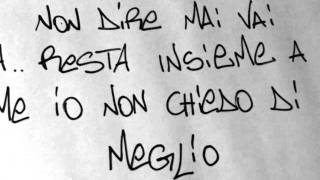 NON DIRE MAI VAI
A.. RESTA INSIEME A
ME IO NON CHIEDO DI
MEGLIO